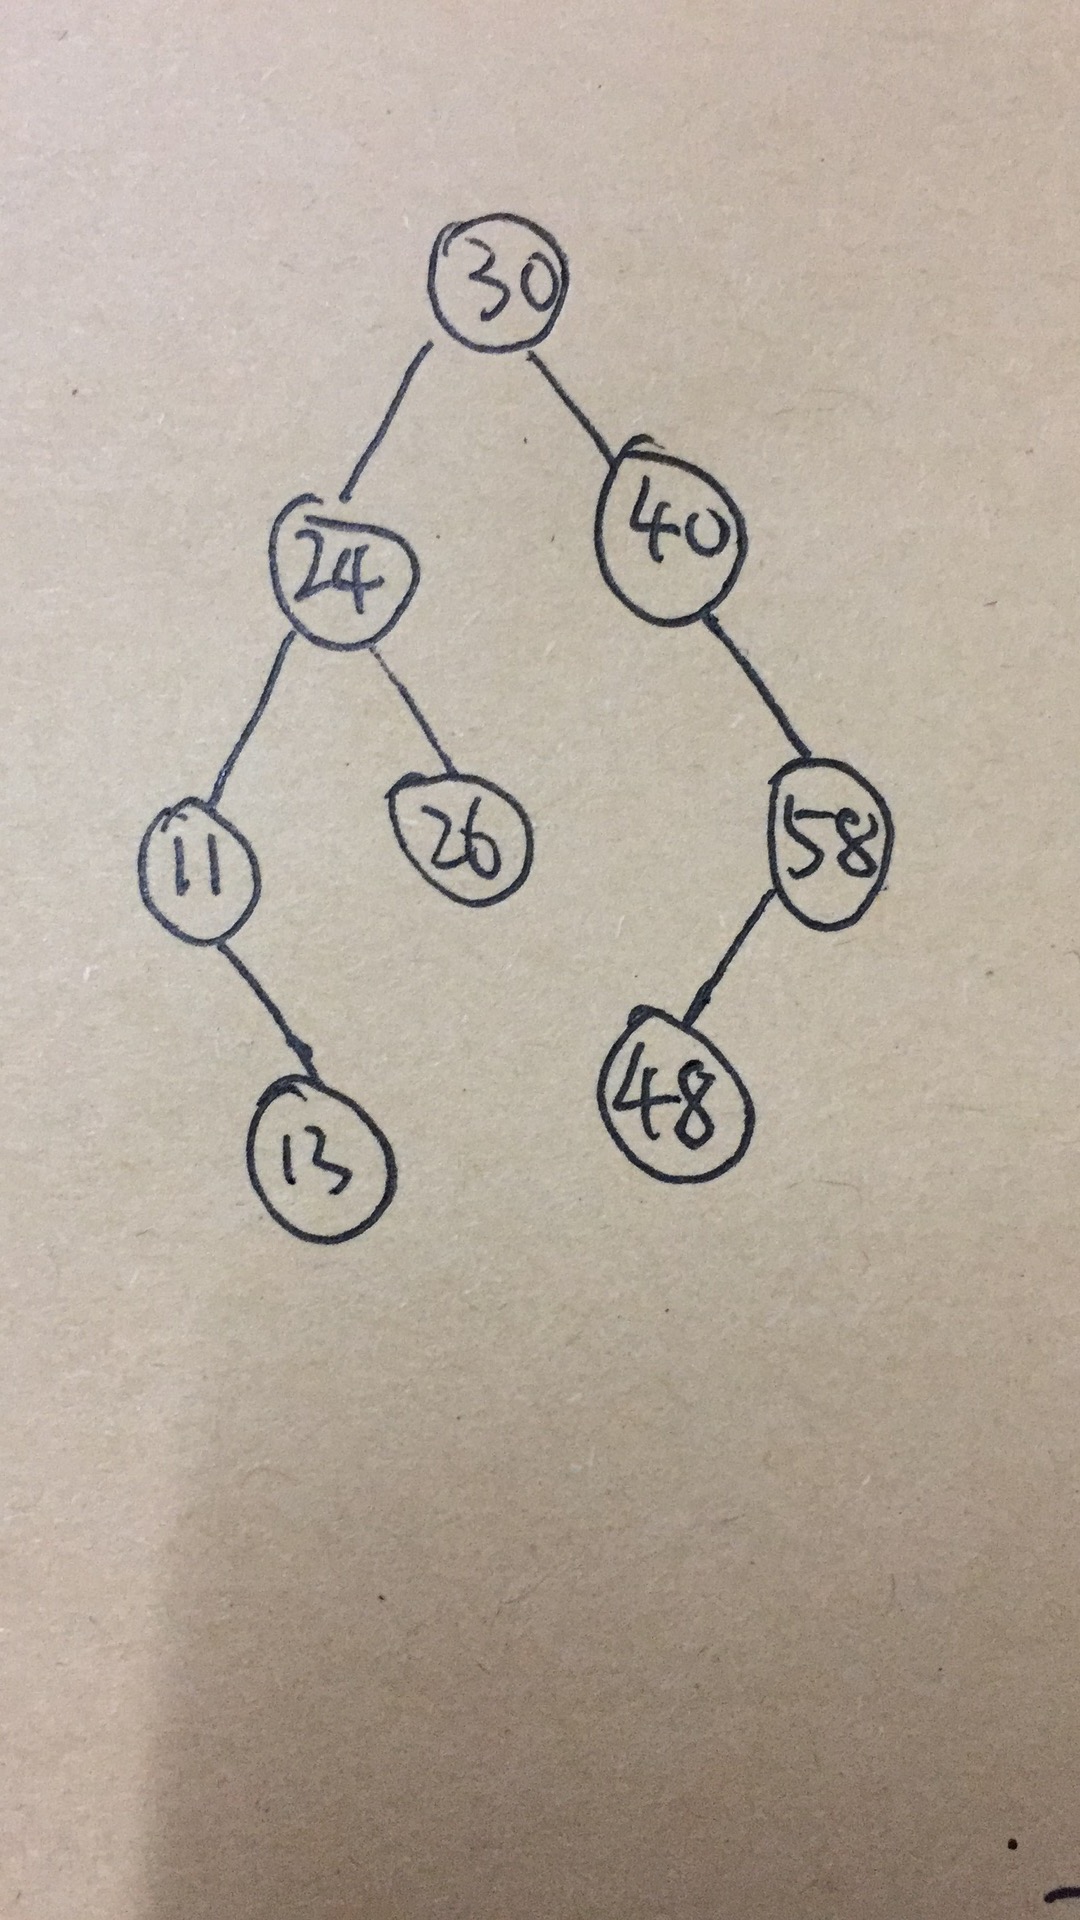 30
24 40
11 26 58
13 48